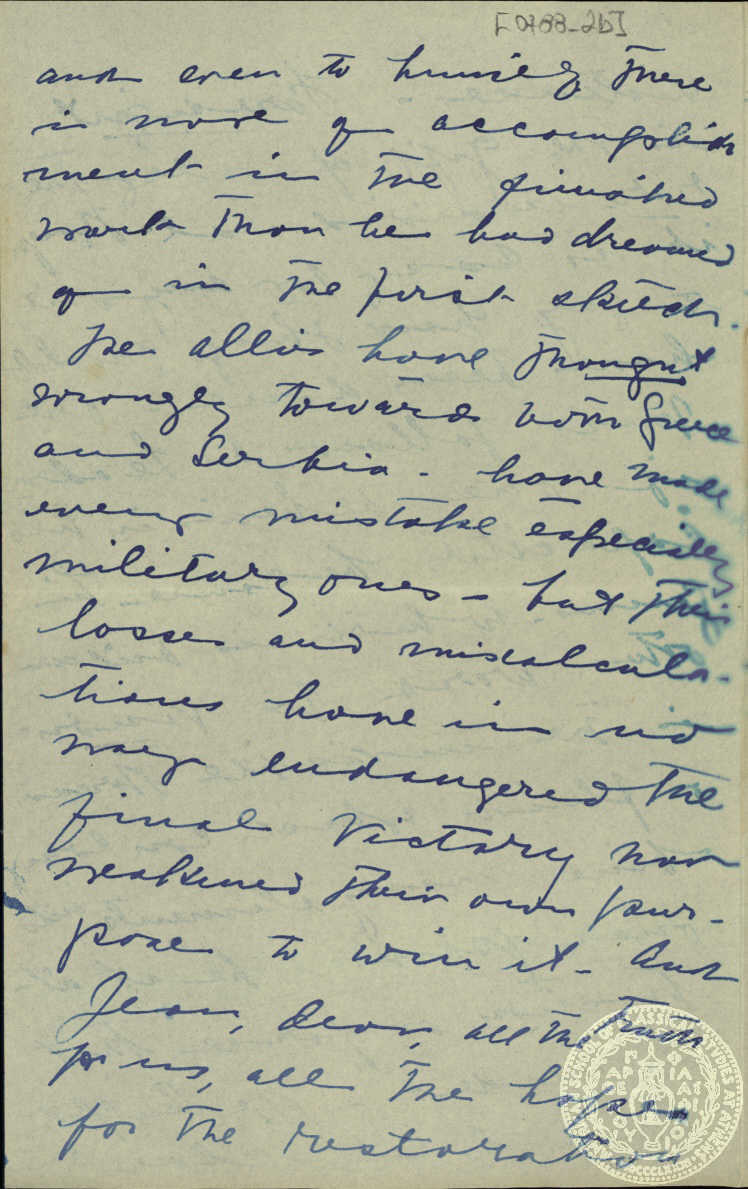 [0788-2b]
and even to himself there
is more of accomplish
ment in the finished
work than he had dreamed
of in the first sketch.
The allies have thought
wrongly towards both Greece
and Serbia - have made
every mistake especially
military ones - but their
losses and miscalcula-
tions have in no
way endangered the
final victory nor
weakened their own pur-
pose to win it - And
Jean, dear, all the truth
for us, all the hope
for the restoration